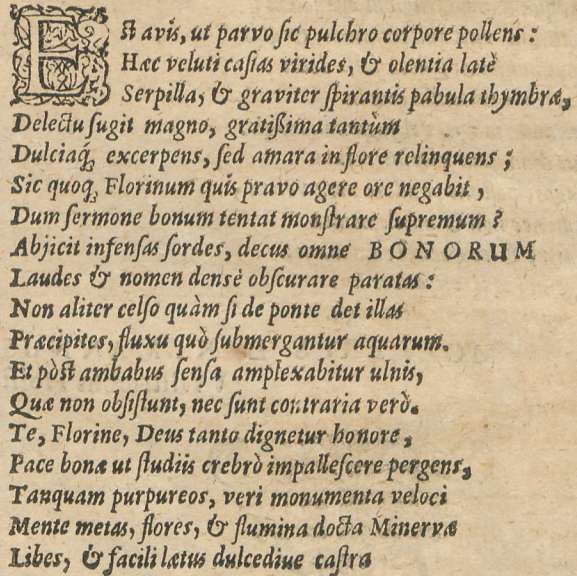 Est avis, ut parvo sic pulchro corpore pollens:
Hæc veluti casias virides, & olentia latè
Serpilla, & graviter spirantis pabula thymbræ,
Delectu sugit magno, gratißima tantùm
Dulciaq́; excerpens, sed amara in flore relinquens;
Sic quoq; Florinum quis pravo agere ore negabit,
Dum sermone bonum tentat monstrare supremum?
Abjicit infensas sordes, decus omne BONORUM
Laudes & nomen densè obscurare paratas:
Non aliter celso quàm si de ponte det illas
Præcipites, fluxu quò submergantur aquarum.
Et pòst ambabus sensa amplexabitur ulnis,
Quæ non obsistunt, nec sunt contraria verò.
Te, Florine, Deus tanto dignetur honore,
Pace bonæ ut studiis crebrò impallescere pergens,
Tanquam purpureos, veri monumenta veloci
Mente metas, flores, & flumina docta Minervæ
Libes, & facili lætus dulcediue castra